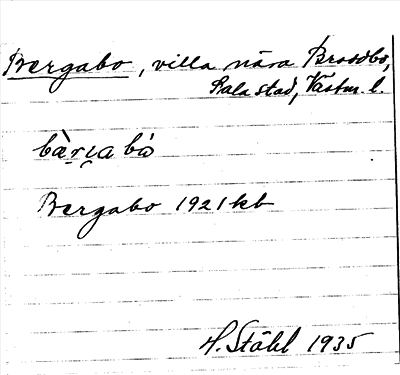 Bergabo, villa nära Broddbo,
Sala stad, Västm. l.
Bergabo 1921 kb
H. Ståhl 1935